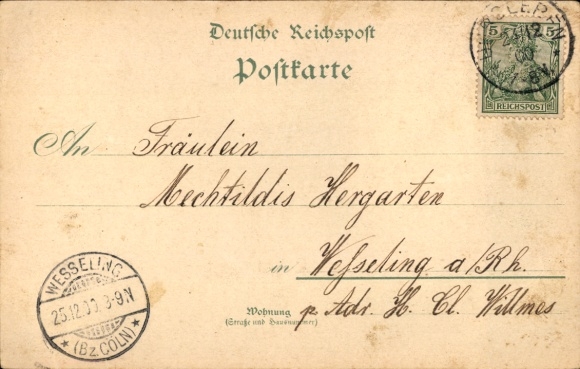 Deutsche Reichspost
Postkarte
5 5
REICHSPOST
An Fräulein
Mechtildis Hergarten
in Wesseling a/Rh.
Wohnung p. Adr. H. Cl. Willmes
(Straße und Hausnummer)
WESSELING
25.12.00.8-9N
* (Bz.CÖLN) *